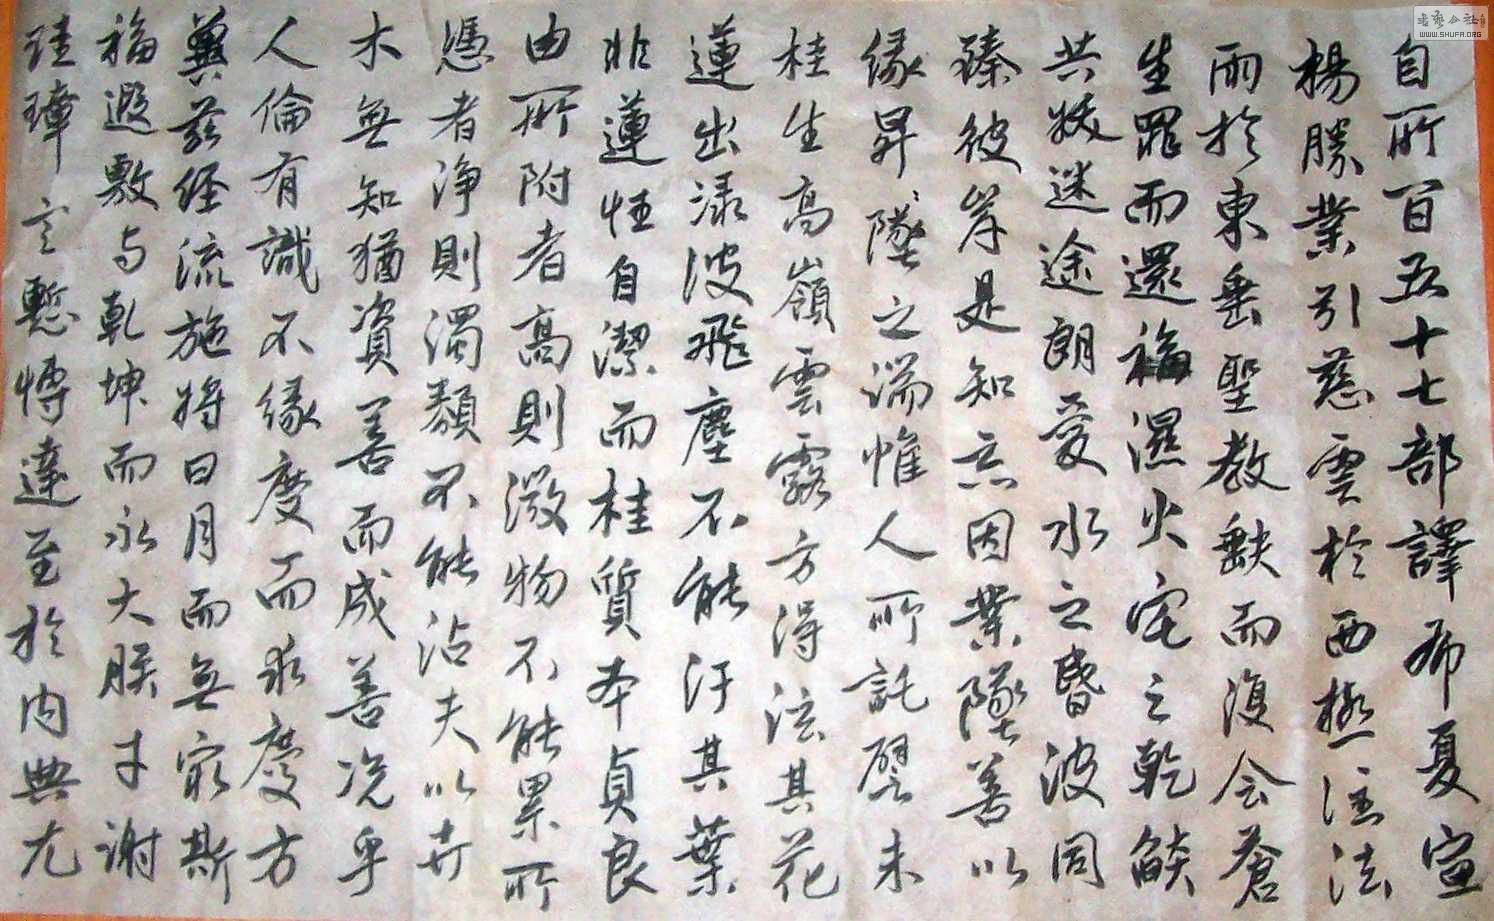 自所百五十七部譯布夏宣
楊勝業引慈雲於西極注法
雨於東垂聖教缺而復全蒼
生罪而還福濕火宅之乾焰
共拔迷途朗愛水之昏波同
臻彼岸是知惡因業墜善以
緣昇墜之端惟人所託譬夫
桂生高嶺雲露方得泫其花
蓮出淥波飛塵不能汙其葉
非蓮性自潔而桂質本貞良
由所附者高則微物不能累所
憑者淨則濁類不能沾夫以卉
木無知猶資善而成善況乎
人倫有識不緣慶而求慶方
冀茲經流施將日月而無窮斯
福遐敷与乾坤而永大朕才謝
珪璋言慙博達至於内典尤
书艺公社
WWW.SHUFA.ORG